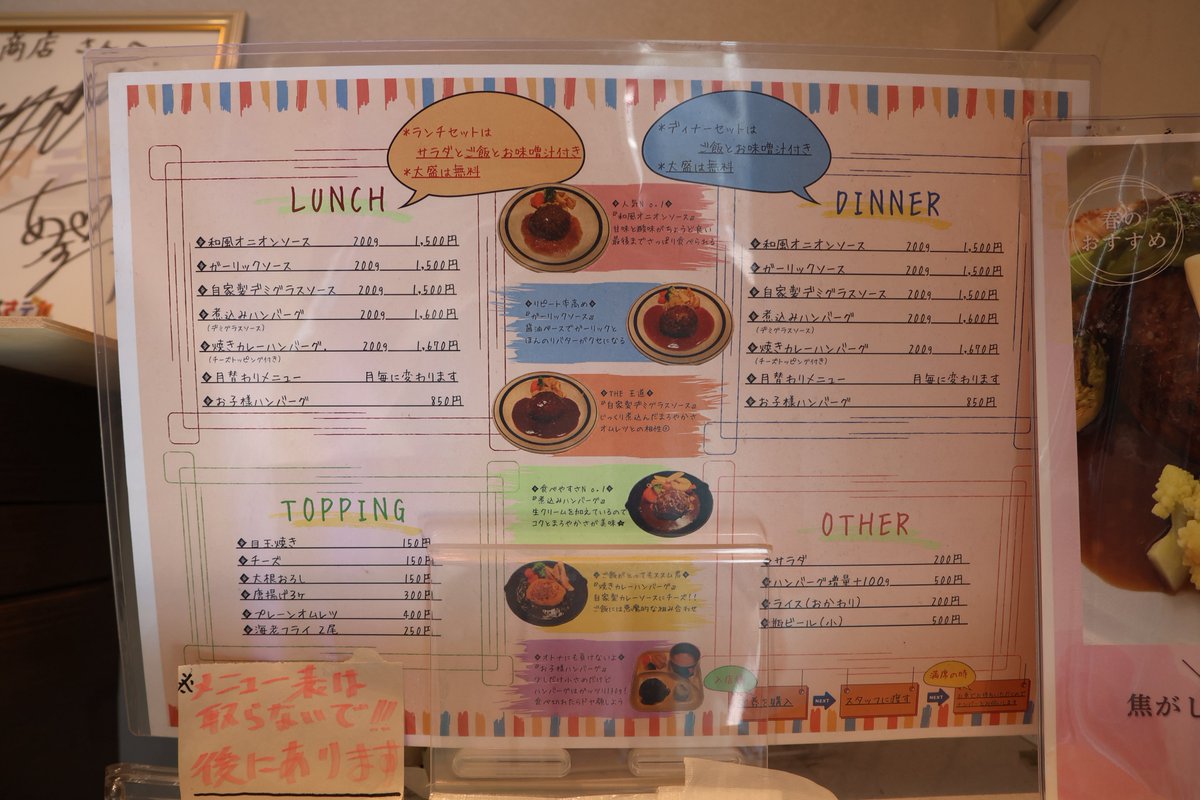 商店 さんへ
*ランチセットは
サラダとご飯とお味噌汁付き
*大盛は無料
LUNCH
◆和風オニオンソース 200g 1,500円
◆ガーリックソース 200g 1,500円
◆自家製デミグラスソース 200g 1,500円
◆煮込みハンバーグ 200g 1,600円
(デミグラスソース)
◆焼きカレーハンバーグ 200g 1,670円
(チーズトッピング付き)
◆月替わりメニュー 月毎に変わります
◆お子様ハンバーグ 850円
*ディナーセットは
ご飯とお味噌汁付き
*大盛は無料
DINNER
◆和風オニオンソース 200g 1,500円
◆ガーリックソース 200g 1,500円
◆自家製デミグラスソース 200g 1,500円
◆煮込みハンバーグ 200g 1,600円
(デミグラスソース)
◆焼きカレーハンバーグ 200g 1,670円
(チーズトッピング付き)
◆月替わりメニュー 月毎に変わります
◆お子様ハンバーグ 850円
◆人気No.1◆
『和風オニオンソース』
甘味と酸味がちょうど良い
最後までさっぱり食べられる
◆リピート率高め◆
『ガーリックソース』
醤油ベースでガーリックと
ほんのりバターがクセになる
◆THE 王道◆
『自家製デミグラスソース』
じっくり煮込んだまろやかさ
オムレツとの相性◎
◆食べやすさNo.1◆
『煮込みハンバーグ』
生クリームを加えているので
コクとまろやかさが美味★
◆ご飯がとってもススム君◆
『焼きカレーハンバーグ』
自家製カレーソースにチーズ!!
ご飯には悪魔的な組み合わせ
◆オトナにも負けないよ◆
『お子様ハンバーグ』
少しだけ小さめだけど
TOPPING
◆目玉焼き 150円
◆チーズ 150円
◆大根おろし 150円
◆唐揚げ3ヶ 300円
◆プレーンオムレツ 400円
◆海老フライ 2尾 250円
OTHER
◆サラダ 200円
◆ハンバーグ増量+100g 500円
◆ライス(おかわり) 200円
◆瓶ビール(小) 500円
券を購入
NEXT
スタッフに渡す
NEXT
満席の時
※メニュー表は
取らないで!!!
後にあります
春の
おすすめ
焦がし